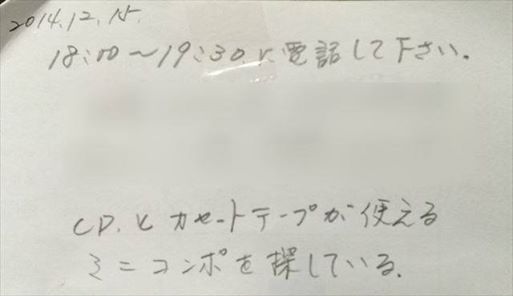 2014.12.15.
18:00〜19:30に電話して下さい。
CD.とカセートテープが使える
ミニコンポを探している.